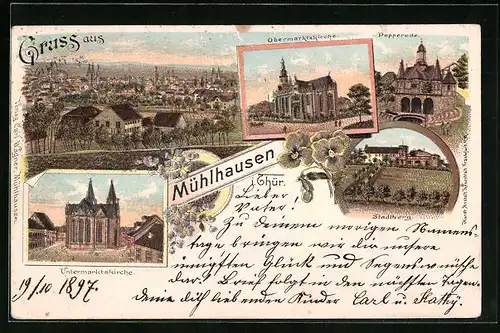 Gruss aus
Obermarktskirche.
Popperode.
Mühlhausen
i. Thür.
Stadtberg.
Untermarktskirche.
19/10 1897.
Lieber
Vater!
Zu Deinem morigen Namens-
tage bringen wir dir unsere
innigsten Glück und Segenswünsche
dar. Brief folgt in den nächsten Tagen.
Deine dich liebenden Kinder Carl u. Kathy.